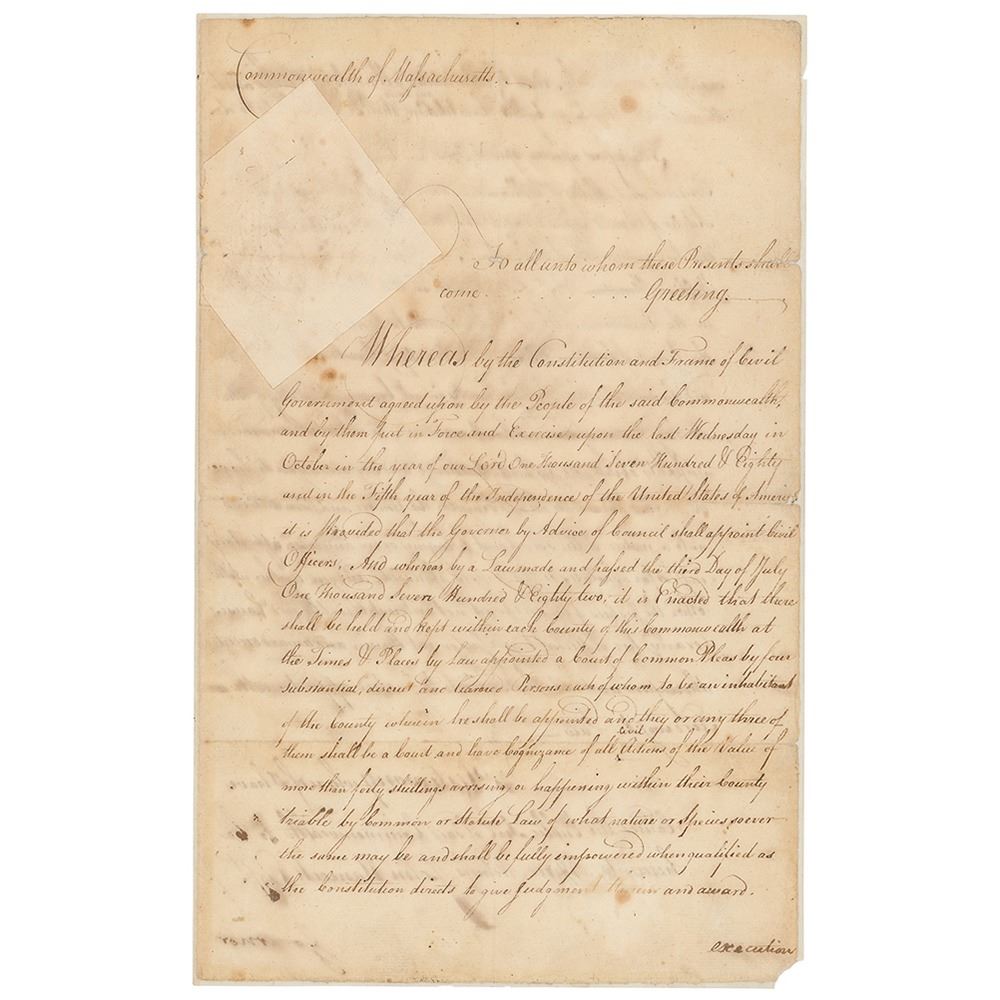 Commonwealth of Massachusetts.
To all unto whom these Presents shall
come . . . . . . . . Greeting.
Whereas by the Constitution and Frame of Civil
Government agreed upon by the People of the said Commonwealth,
and by them put in Force and Exercise, upon the last Wednesday in
October in the year of our Lord One Thousand Seven Hundred & Eighty
and in the Fifth year of the Independence of the United States of America
it is Provided that the Governor by Advice of Council shall appoint Civil
Officers, And whereas by a Law made and passed the third Day of July
One Thousand Seven Hundred & Eighty two, it is Enacted that there
shall be held and kept within each County of this Commonwealth at
the Times & Places by Law appointed a Court of Common Pleas by four
substantial, discreet and learned Persons each of whom to be an inhabitant
of the County wherein he shall be appointed and they or any three of
them shall be a Court and have Cognizance of all Civil Actions of the Value of
more than forty shillings arising or happening within their County
triable by Common or Statute Law of what nature or Species soever
the same may be and shall be fully impowered when qualified as
the Constitution directs to give Judgment therein and award.
execution